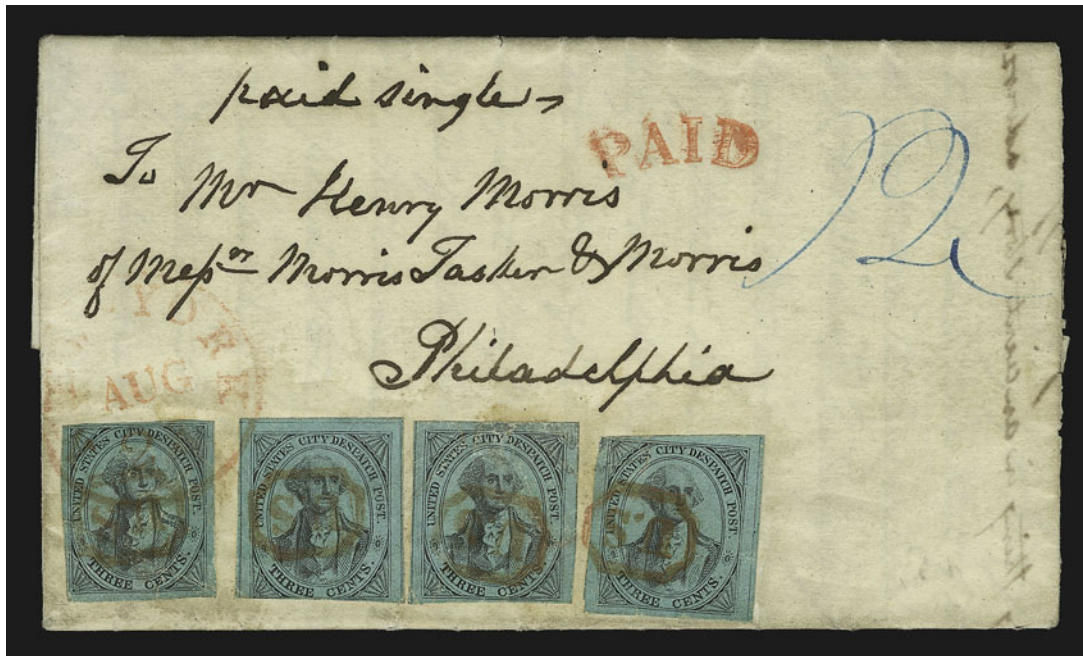 paid single
PAID
12
To Mr Henry Morris
of Messrs Morris Tasker & Morris
Philadelphia
YORK
AUG
UNITED STATES CITY DESPATCH POST.
THREE CENTS.
UNITED STATES CITY DESPATCH POST.
THREE CENTS.
UNITED STATES CITY DESPATCH POST.
THREE CENTS.
UNITED STATES CITY DESPATCH POST.
THREE CENTS.